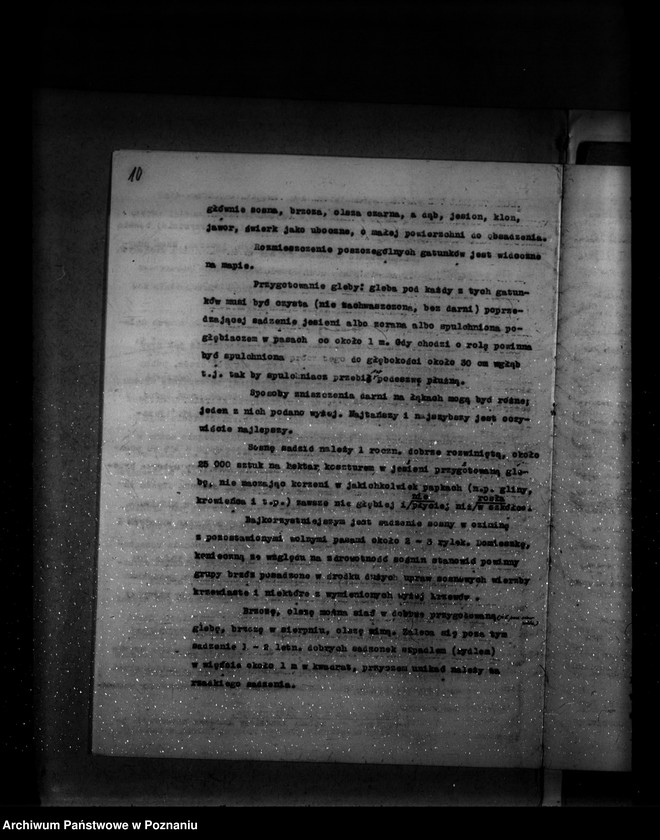 10
głównie sosna, brzoza, olsza czarna, a dąb, jesion, klon,
jawor, świerk jako uboczne, o małej powierzchni do obsadzenia.
Rozmieszczenie poszczególnych gatunków jest widoczne
na mapie.
Przygotowanie gleby: gleba pod każdy z tych gatun-
ków musi być czysta (nie zachwaszczona, bez darni) poprze-
dzającej sadzenie jesieni albo zorana albo spulchniona po-
głębiaczem w pasach co około 1 m. Gdy chodzi o rolę powinna
być spulchniona do głębokości około 30 cm wgłąb
t.j. tak by spulchniacz przebił podeszwę płużną.
Sposoby zniszczenia darni na łąkach mogą być różne;
jeden z nich podano wyżej. Najtańszy i najszybszy jest oczy-
wiście najlepszy.
Sosnę sadzić należy 1 roczn. dobrze rozwiniętą, około
25 000 sztuk na hektar, kosturem w jesieni przygotowaną gle-
bę, nie maczając korzeni w jakichkolwiek papkach (n.p. gliny,
nie rosła
krowieńca i t.p.) zawsze nie głębiej i/płyciej niż/w szkółce.
Najkorzystniejszym jest sadzenie sosny w oziminę
z pozostawionymi wolnymi pasami około 2 - 3 rylek. Domieszkę,
konieczną ze względu na zdrowotność sośnin stanowić powinny
grupy brzóz posadzone w środku dużych upraw sosnowych wierzby
krzewiaste i niektóre z wymienionych wyżej krzewów.
Brzozę, olszę można siać w dobrze przygotowaną
glebę, brzozę w sierpniu, olszę zimą. Zaleca się poza tym
sadzenie 1 - 2 letn. dobrych sadzonek szpadlem (rydlem)
w więźbie około 1 m w kwadrat, przyczem unikać należy za
rzadkiego sadzenia.
Archiwum Państwowe w Poznaniu